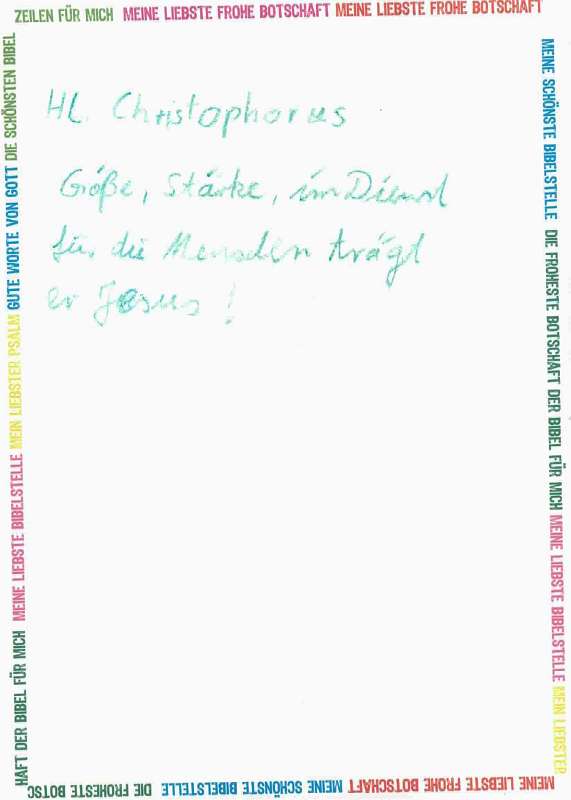 ZEILEN FÜR MICH MEINE LIEBSTE FROHE BOTSCHAFT MEINE LIEBSTE FROHE BOTSCHAFT
Hl. Christophorus
Größe, Stärke, im Dienst
für die Menschen trägt
er Jesus!
MEINE SCHÖNSTE BIBELSTELLE DIE FROHESTE BOTSCHAFT DER BIBEL FÜR MICH MEINE LIEBSTE BIBELSTELLE MEIN LIEBSTER
MEINE LIEBSTE FROHE BOTSCHAFT MEINE SCHÖNSTE BIBELSTELLE DIE FROHESTE BOTSC
HAFT DER BIBEL FÜR MICH MEINE LIEBSTE BIBELSTELLE MEIN LIEBSTER PSALM GUTE WORTE VON GOTT DIE SCHÖNSTEN BIBEL